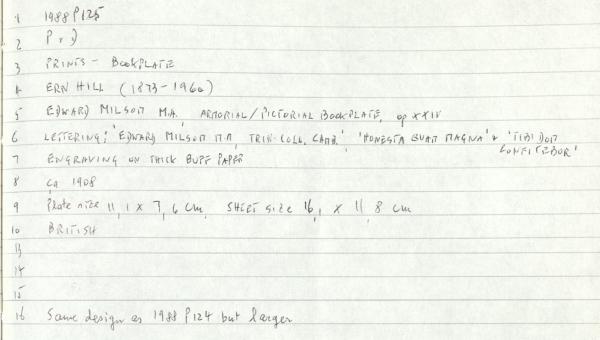 1 1988 P125
2 P & D
3 PRINTS - BOOKPLATE
4 ERN HILL (1873-1960)
5 EDWARD MILSOM M.A. ARMORIAL/PICTORIAL BOOKPLATE, op XXIV
6 LETTERING; 'EDWARD MILSOM M.A. TRIN. COLL. CAMB.', 'HONESTA QUAM MAGNA' & 'TIBI DOM
CONFITEBOR'
7 ENGRAVING ON THICK BUFF PAPER
8 ca 1908
9 Plate size 11,1 X 7,6 cm, SHEET size 16,1 X 11,8 cm
10 BRITISH
13
14
15
16 Same design as 1988 P124 but larger